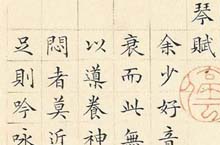 琴賦
余少好音
衰而此無
以導養神
悶者莫近
足則吟詠